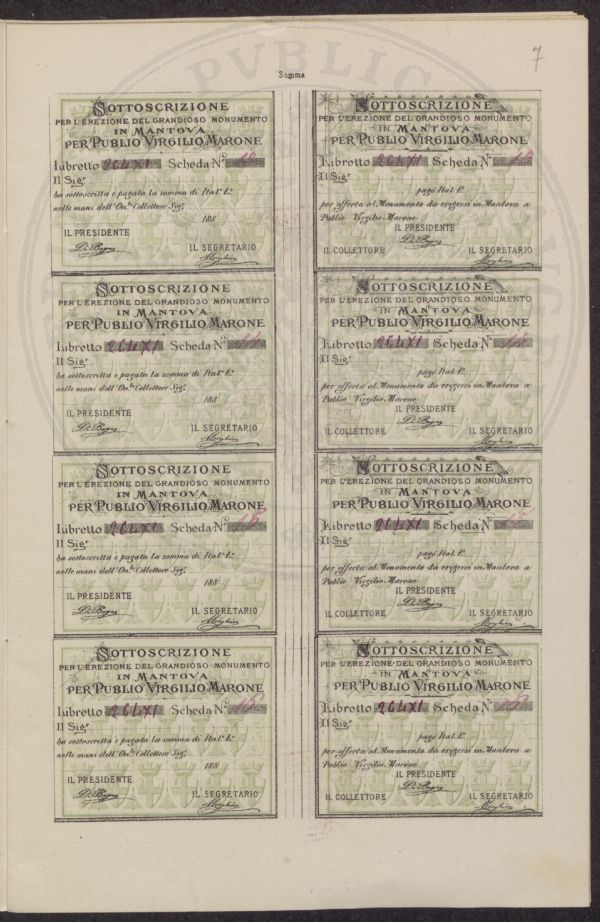 7
Somma
SOTTOSCRIZIONE
PER L'EREZIONE DEL GRANDIOSO MONUMENTO
IN MANTOVA
PER PUBLIO VIRGILIO MARONE
Libretto Scheda N°
Il Sigr
ha sottoscritta e pagata la somma di Ital. L.
nelle mani dell'On.le Collettore Sig.
188
IL PRESIDENTE
IL SEGRETARIO
SOTTOSCRIZIONE
PER L'EREZIONE DEL GRANDIOSO MONUMENTO
IN MANTOVA
PER PUBLIO VIRGILIO MARONE
Libretto Scheda N°
Il Sigr
pagò Ital. L.
per offerta al Monumento da erigersi in Mantova a
Publio Virgilio Marone
IL PRESIDENTE
IL COLLETTORE IL SEGRETARIO
SOTTOSCRIZIONE
PER L'EREZIONE DEL GRANDIOSO MONUMENTO
IN MANTOVA
PER PUBLIO VIRGILIO MARONE
Libretto Scheda N°
Il Sigr
ha sottoscritta e pagata la somma di Ital. L.
nelle mani dell'On.le Collettore Sig.
188
IL PRESIDENTE
IL SEGRETARIO
SOTTOSCRIZIONE
PER L'EREZIONE DEL GRANDIOSO MONUMENTO
IN MANTOVA
PER PUBLIO VIRGILIO MARONE
Libretto Scheda N°
Il Sigr
pagò Ital. L.
per offerta al Monumento da erigersi in Mantova a
Publio Virgilio Marone
IL PRESIDENTE
IL COLLETTORE IL SEGRETARIO
SOTTOSCRIZIONE
PER L'EREZIONE DEL GRANDIOSO MONUMENTO
IN MANTOVA
PER PUBLIO VIRGILIO MARONE
Libretto Scheda N°
Il Sigr
ha sottoscritta e pagata la somma di Ital. L.
nelle mani dell'On.le Collettore Sig.
188
IL PRESIDENTE
IL SEGRETARIO
SOTTOSCRIZIONE
PER L'EREZIONE DEL GRANDIOSO MONUMENTO
IN MANTOVA
PER PUBLIO VIRGILIO MARONE
Libretto Scheda N°
Il Sigr
pagò Ital. L.
per offerta al Monumento da erigersi in Mantova a
Publio Virgilio Marone
IL PRESIDENTE
IL COLLETTORE IL SEGRETARIO
SOTTOSCRIZIONE
PER L'EREZIONE DEL GRANDIOSO MONUMENTO
IN MANTOVA
PER PUBLIO VIRGILIO MARONE
Libretto Scheda N°
Il Sigr
ha sottoscritta e pagata la somma di Ital. L.
nelle mani dell'On.le Collettore Sig.
188
IL PRESIDENTE
IL SEGRETARIO
SOTTOSCRIZIONE
PER L'EREZIONE DEL GRANDIOSO MONUMENTO
IN MANTOVA
PER PUBLIO VIRGILIO MARONE
Libretto Scheda N°
Il Sigr
pagò Ital. L.
per offerta al Monumento da erigersi in Mantova a
Publio Virgilio Marone
IL PRESIDENTE
IL COLLETTORE IL SEGRETARIO